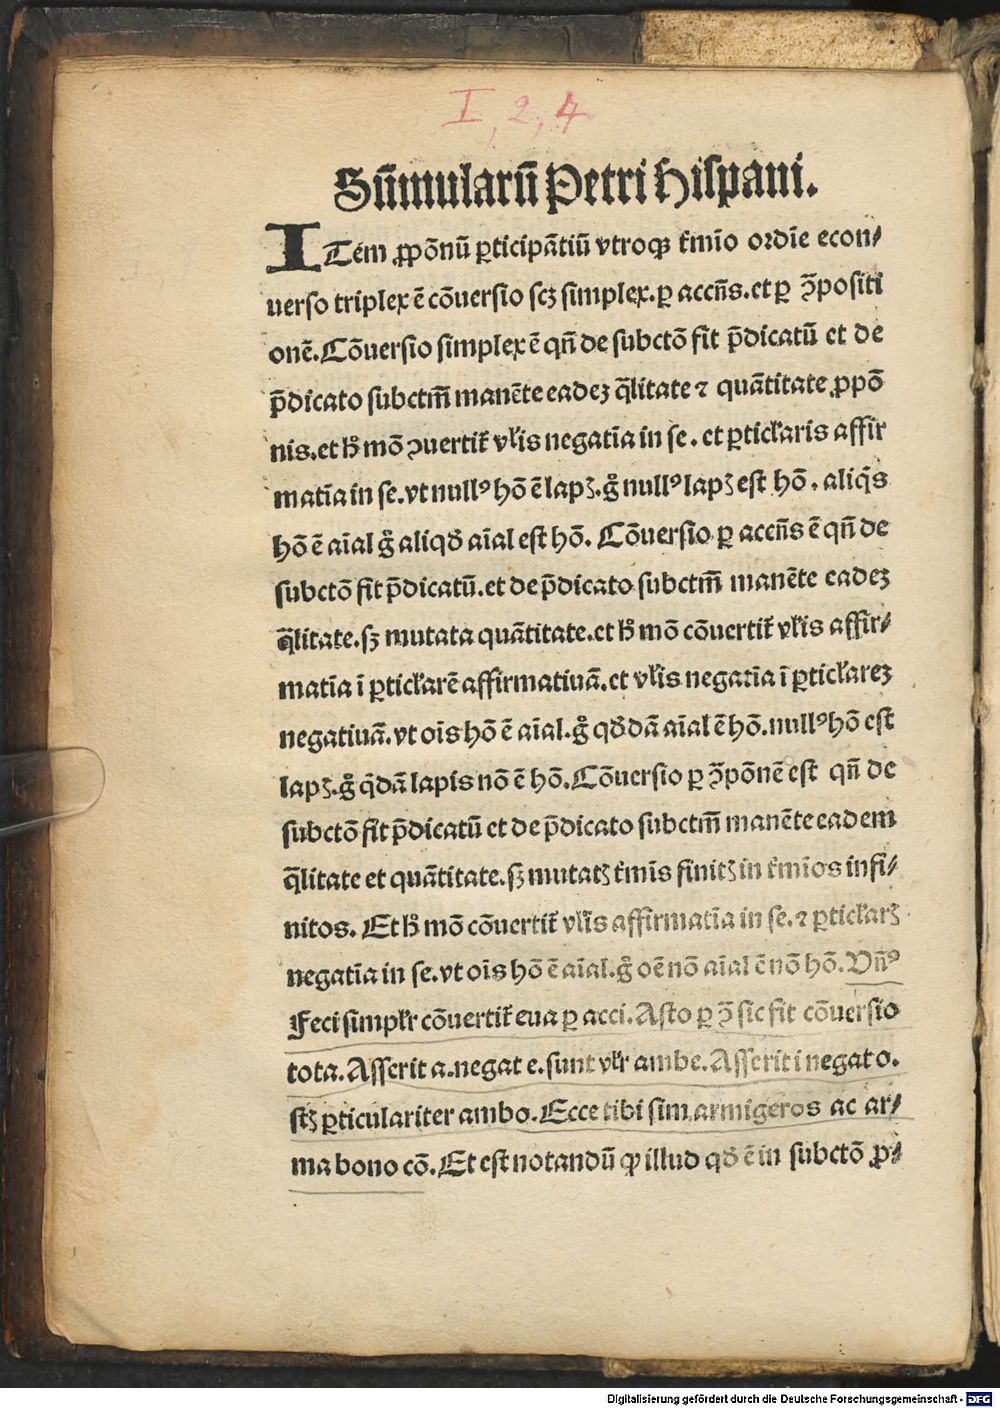 I, 2, 4
Sūmularū Petri Hispani.
ITem ꝓpōnū ꝑticipātiū vtroqꝫ t̄mīo ordīe econ/
uerso triplex ē cōuersio scꝫ simplex.ꝑ accn̄s.et ꝑ ꝯ̄positi
onē.Cōuersio simplex ē qn̄ de subctō fit p̄dicatū et de
p̄dicato subctm̄ manēte eadeꝫ q̄litate ⁊ quātitate ꝓpō
nis.et h̄ mō ꝯuertit̄ vl̄is negatīa in se. et ꝑticl̄aris affir
matīa in se.vt nullꝰ hō ē lapꝫ.g̊ nullꝰ lapꝫ est hō. aliq̄s
hō ē aīal g̊ aliqd̄ aīal est hō. Cōuersio ꝑ accn̄s ē qn̄ de
subctō fit p̄dicatū.et de p̄dicato subctm̄ manēte eadeꝫ
q̄litate.sꝫ mutata quātitate.et h̄ mō cōuertit̄ vl̄is affir/
matīa ī ꝑticl̄arē affirmatiuā.et vl̄is negatīa ī ꝑticl̄areꝫ
negatiuā.vt oīs hō ē aīal.g̊ qd̄dā aīal ē hō.nullꝰ hō est
lapꝫ.g̊ q̇dā lapis nō ē hō.Cōuersio ꝑ ꝯ̄pōnē est qn̄ de
subctō fit p̄dicatū et de p̄dicato subctm̄ manēte eadem
q̄litate et quātitate.sꝫ mutatꝫ t̄mīs finitꝫ in t̄mīos infi/
nitos. Et h̄ mō cōuertit̄ vl̄is affirmatīa in se.⁊ ꝑticl̄arꝫ
negatīa in se.vt oīs hō ē aīal.g̊ oē nō aīal ē nō hō.Vn̄ꝰ
Feci simpl̄r cōuertit̄ eua ꝑ acci.Asto ꝑ ꝯ̄ sic fit cōuersio
tota.Asserit a.negat e.sunt vl̄r ambe.Asserit i negat o.
sꝫ ꝑticulariter ambo.Ecce tibi sim armigeros ac ar/
ma bono cō.Et est notandū ꝙ illud qd̄ ē in subctō ꝓ/
Digitalisierung gefördert durch die Deutsche Forschungsgemeinschaft - DFG